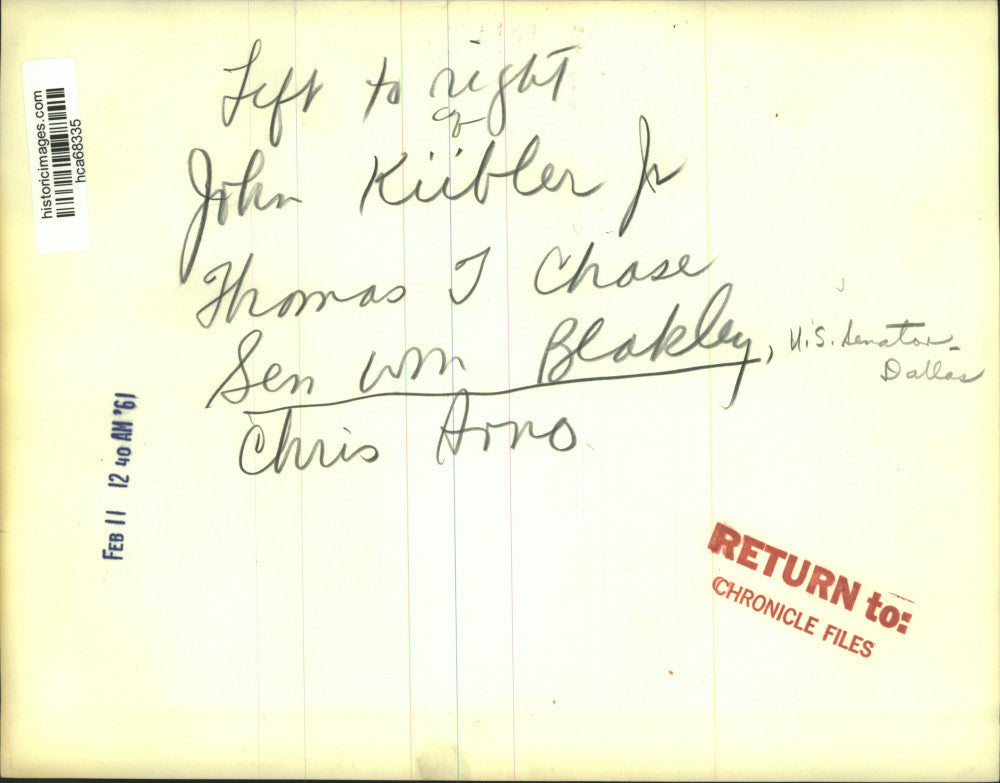 historicimages.com
hca68335
Left to right
John Küibler Jr
Thomas T Chase
Sen Wm Blakley, U.S. Senator-
Dallas
Chris Arno
FEB 11 12 40 AM '61
RETURN to:
CHRONICLE FILES